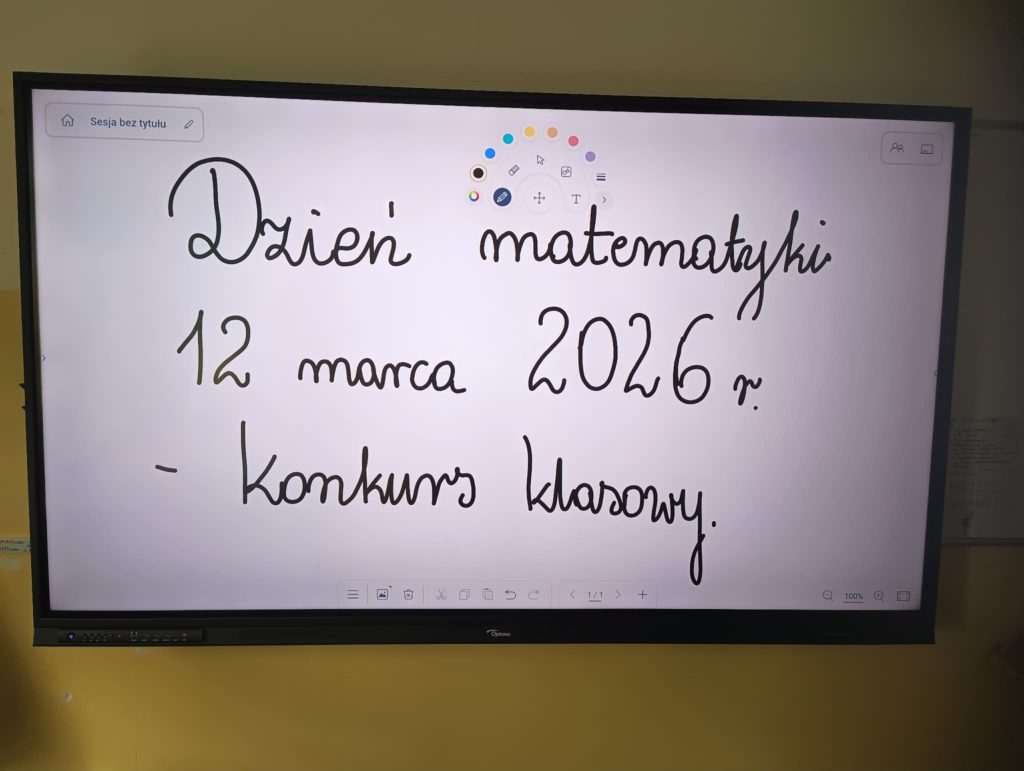 Sesja bez tytułu
Dzień matematyki
12 marca 2026 r.
- konkurs klasowy.
1/1
100%
Optoma